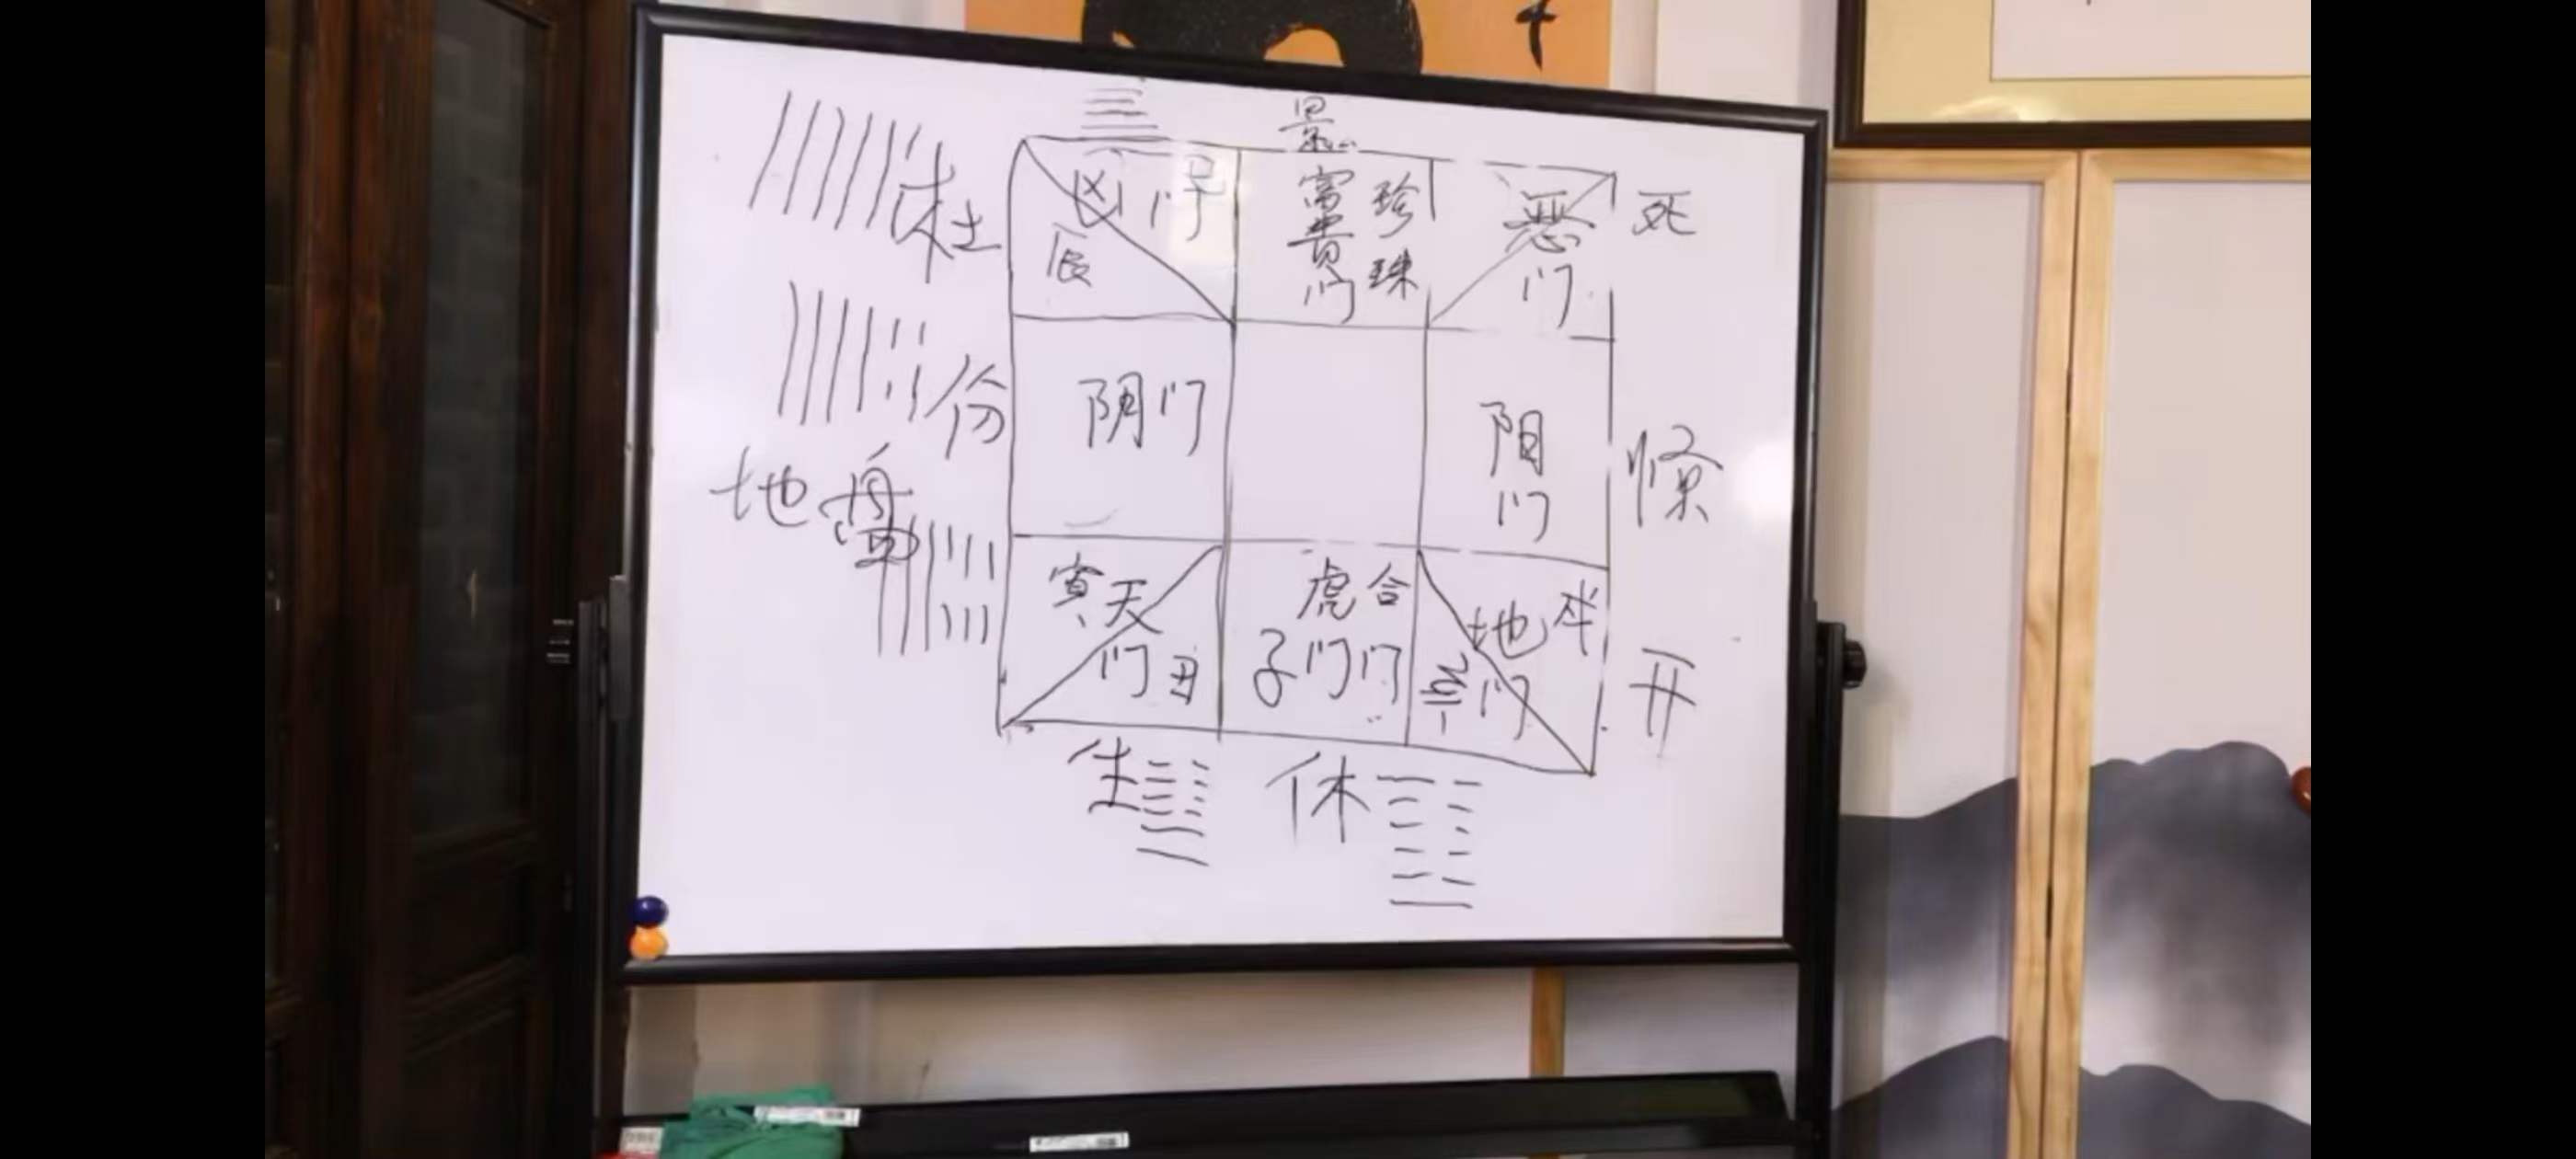 景
杜
凶门
辰
富贵门
珍珠
恶门
死
份
阴门
阳门
惊
地盘
寅 天门 丑
虎门 合门
子
地门
开
生
休